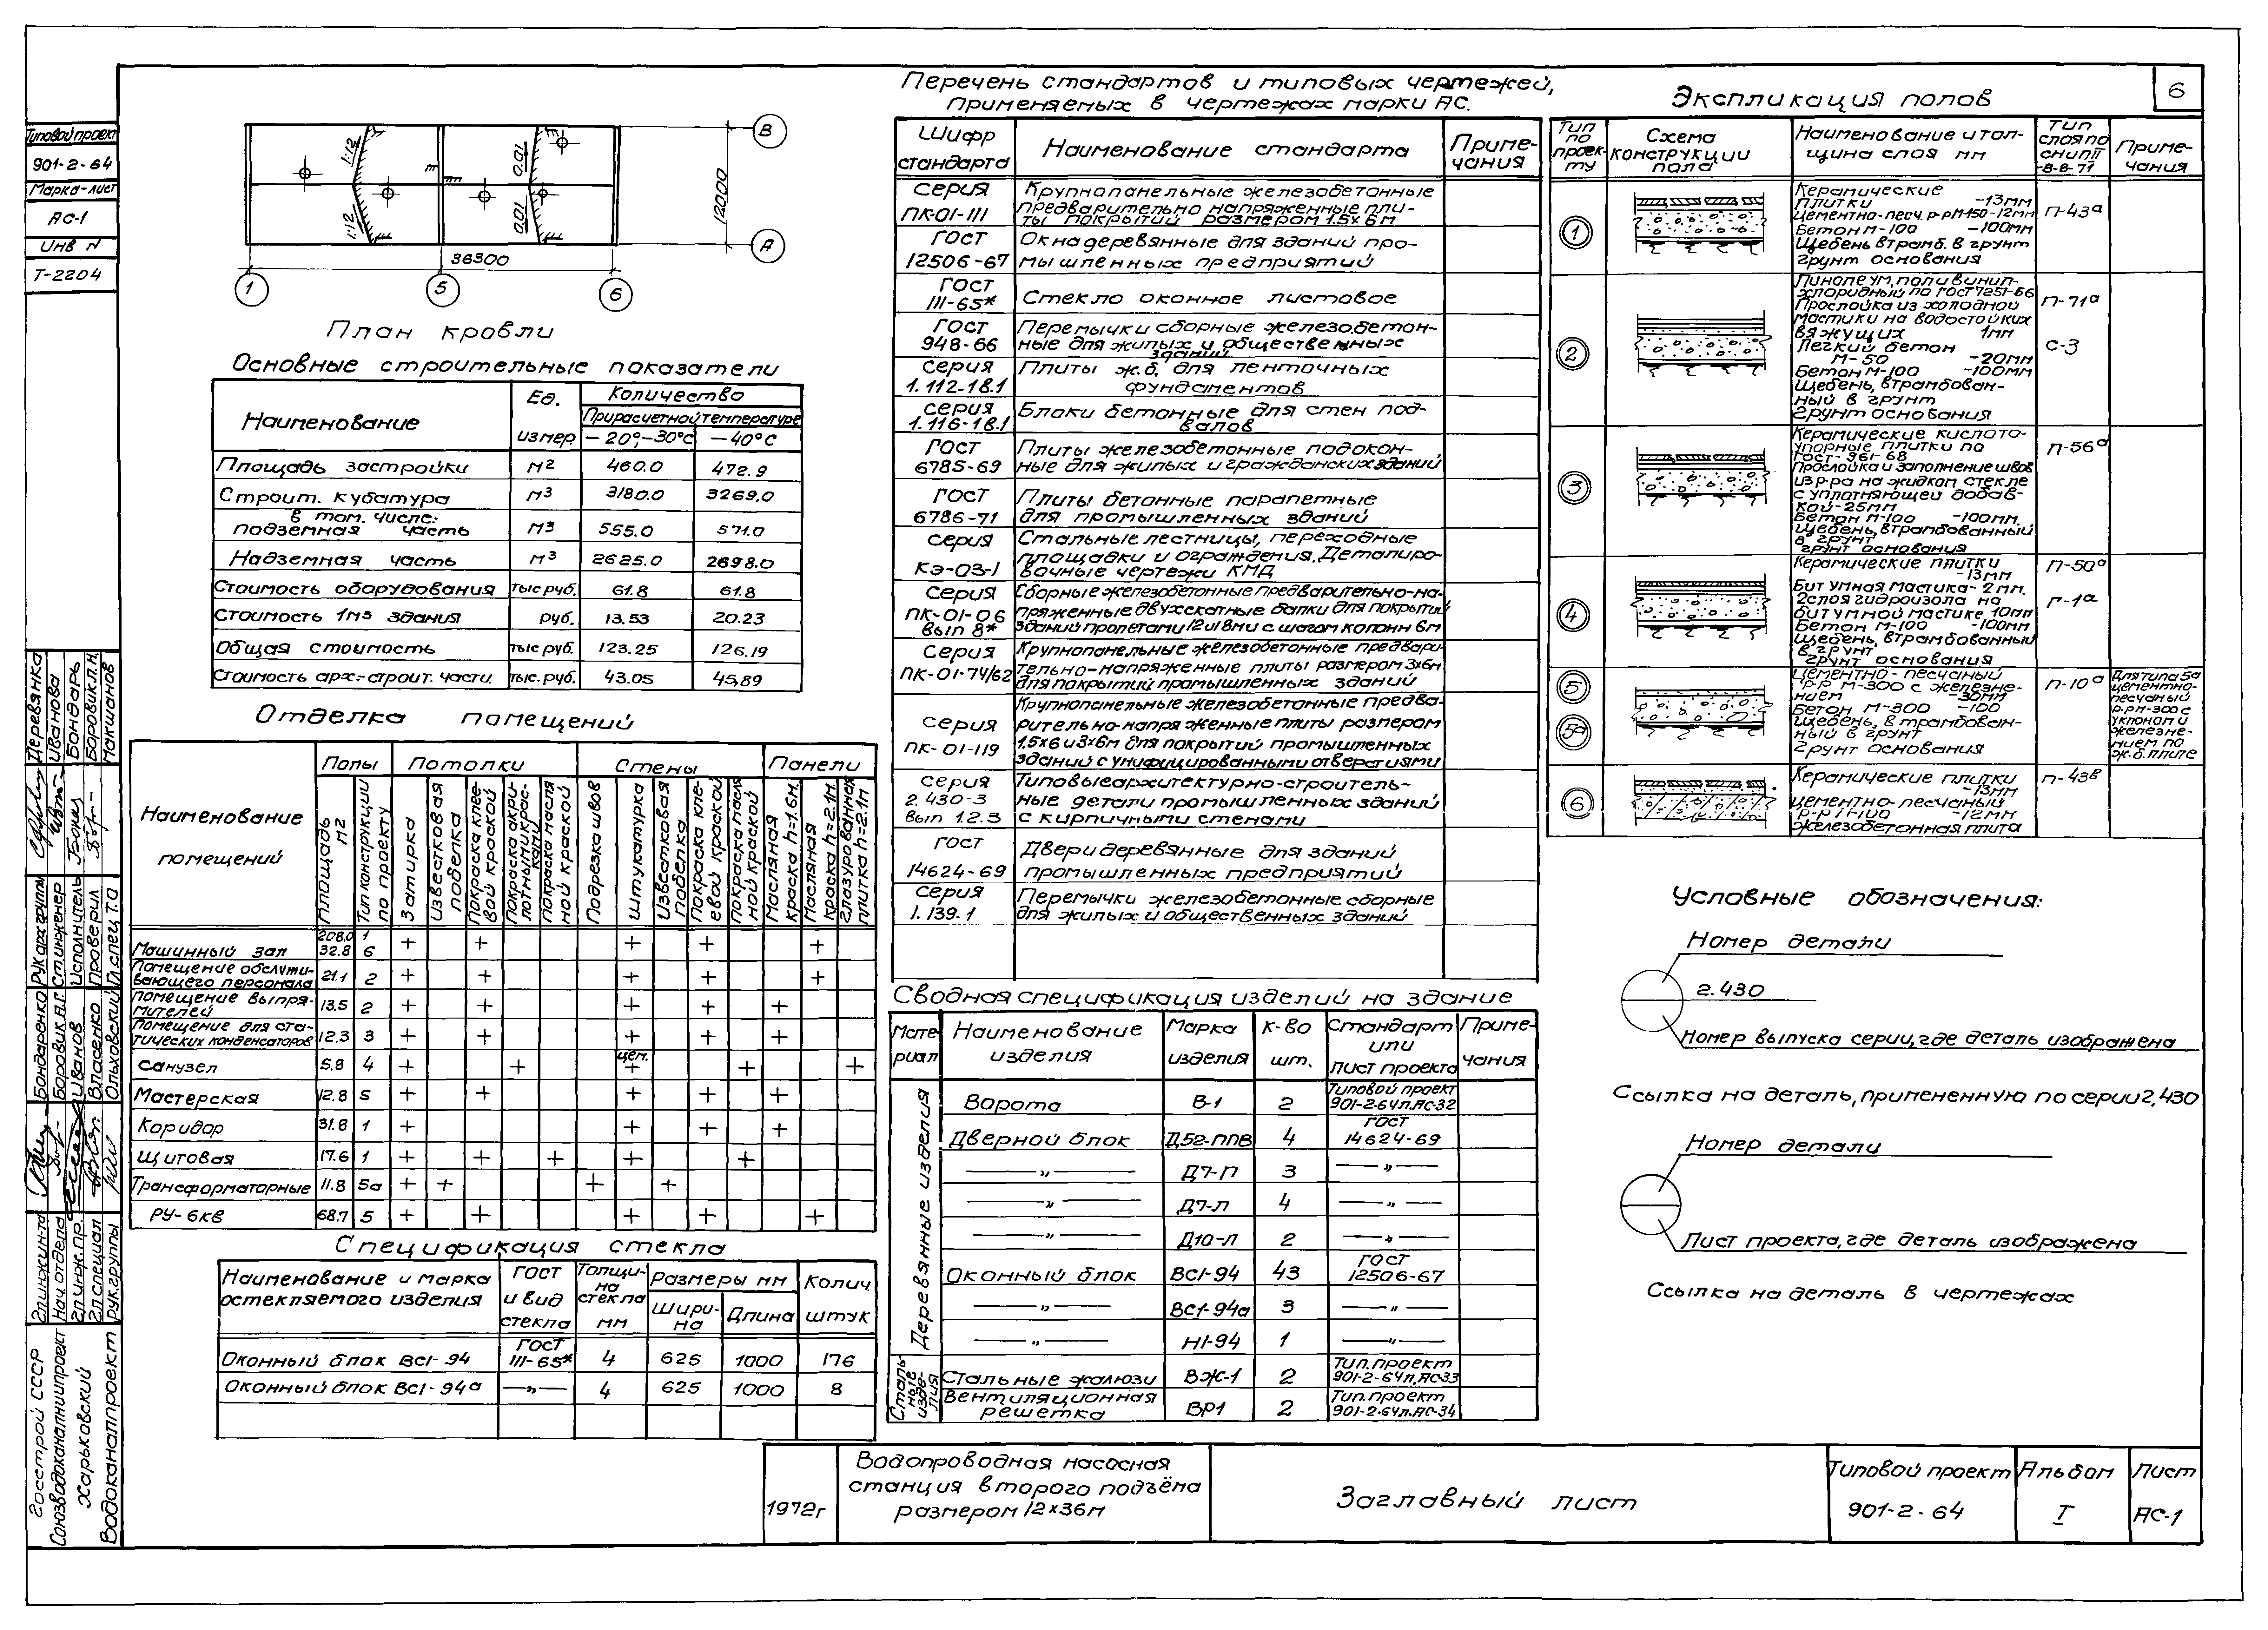 6
Типовой проект
901-2-64
Марка-лист
АС-1
Инв N
Т-2204
1:12
1:12
0.01
0.01
12000
36300
В
А
1
5
6
План кровли
Основные строительные показатели
Наименование
Ед.
измер
Количество
При расчетной температуре
-20°,-30°С
-40°С
Площадь застройки м2 460.0 472.9
Строит. кубатура м3 3180.0 3269.0
в том числе:
подземная часть м3 555.0 571.0
Надземная часть м3 2625.0 2698.0
Стоимость оборудования тыс руб. 61.8 61.8
Стоимость 1м3 здания руб. 13.53 20.23
Общая стоимость тыс руб. 123.25 126.19
Стоимость арх.-строит. части тыс. руб. 43.05 45,89
Отделка помещений
Наименование
помещений
Полы
Потолки
Стены
Панели
Площадь
м2
Тип конструкции
по проекту
Затирка
Известковая
побелка
Покраска клее-
вой краской
Покраска акри-
лотными крас-
ками
Покраска масля
ной краской
Подрезка швов
Штукатурка
Известковая
побелка
Покраска кле-
евой краской
Покраска масля
ной краской
Масляная
краска h=1.6м.
Масляная
краска h=2.1м
Глазурованная
плитка h=2.1м
Машинный зал 208.0 1 + + + + +
32.8 6
Помещение обслужи-
вающего персонала 21.1 2 + + + + +
Помещение выпря-
мителей 13,5 2 + + + + +
Помещение для ста-
тических конденсаторов 12.3 3 + + + + +
Санузел 5.8 4 + + цем. + + +
Мастерская 12.8 5 + + + + +
Коридор 31.8 1 + + + +
Щитовая 17.6 1 + + + + +
Трансформаторные 11.8 5а + + + +
РУ-6кв 68.7 5 + + + + +
Спецификация стекла
Наименование и марка
остекляемого изделия
ГОСТ
и вид
стекла
Толщи-
на
стекла
мм
Размеры мм
Шири-
на
Длина
Колич.
штук
Оконный блок ВС1-94 ГОСТ 111-65* 4 625 1000 176
Оконный блок ВС1-94а —"— 4 625 1000 8
Перечень стандартов и типовых чертежей,
применяемых в чертежах марки АС.
Шифр
стандарта
Наименование стандарта
Приме-
чания
Серия
ПК-01-111
Крупнопанельные железобетонные
предварительно напряженные пли-
ты покрытий размером 1.5х6м
ГОСТ
12506-67
Окна деревянные для зданий про-
мышленных предприятий
ГОСТ
111-65*
Стекло оконное листовое
ГОСТ
948-66
Перемычки сборные железобетон-
ные для жилых и общественных
зданий
Серия
1.112-1в.1
Плиты ж.б. для ленточных
фундаментов
серия
1.116-1в.1
Блоки бетонные для стен под-
валов
ГОСТ
6785-69
Плиты железобетонные подокон-
ные для жилых и гражданских зданий
ГОСТ
6786-71
Плиты бетонные парапетные
для промышленных зданий
серия
КЭ-03-1
Стальные лестницы, переходные
площадки и ограждения. Деталиро-
вочные чертежи КМД
серия
ПК-01-06
вып 8*
Сборные железобетонные предварительно-на-
пряженные двухскатные балки для покрытий
зданий пролетами 12и18м с шагом колонн 6м
Серия
ПК-01-74/62
Крупнопанельные железобетонные предвари-
тельно-напряженные плиты размером 3х6м
для покрытий промышленных зданий
серия
ПК-01-119
Крупнопанельные железобетонные предва-
рительно-напряженные плиты размером
1.5х6 и 3х6м для покрытий промышленных
зданий с унифицированными отверстиями
серия
2.430-3
вып 1.2.3
Типовые архитектурно-строитель-
ные детали промышленных зданий
с кирпичными стенами
ГОСТ
14624-69
Двери деревянные для зданий
промышленных предприятий
серия
1.139.1
Перемычки железобетонные сборные
для жилых и общественных зданий
Сводная спецификация изделий на здание
Мате-
риал
Наименование
изделия
Марка
изделия
К-во
шт.
Стандарт
или
лист проекта
Приме-
чания
Деревянные изделия
Ворота В-1 2 Типовой проект
901-2-64л.АС-32
Дверной блок Д52-ППВ 4 ГОСТ
14624-69
—"— Д7-П 3 —"—
—"— Д7-Л 4 —"—
—"— Д10-Л 2 —"—
Оконный блок ВС1-94 43 ГОСТ
12506-67
—"— ВС1-94а 3 —"—
—"— Н1-94 1 —"—
Сталь-
ные
изде-
лия
Стальные жалюзи ВЖ-1 2 Тип.проект
901-2-64л,АС-33
Вентиляционная
решетка ВР1 2 Тип.проект
901-2-64л.АС-34
Экспликация полов
Тип
по
проек-
ту
Схема
конструкции
пола
Наименование и тол-
щина слоя мм
Тип
слоя по
СНиП II
-В-8-71
Приме-
чания
1
Керамические
плитки -13мм
Цементно-песч. р-р М-150-12мм
Бетон М-100 -100мм
Щебень втрамб. в грунт
грунт основания
П-43а
2
Линолеум, поливинил-
хлоридный по ГОСТ 7251-66
Прослойка из холодной
мастики на водостойких
вяжущих 1мм
Легкий бетон
М-50 -20мм
Бетон М-100 -100мм
Щебень, втрамбован-
ный в грунт
грунт основания
П-71а
С-3
3
Керамические кислото-
упорные плитки по
ГОСТ-961-68
Прослойка и заполнение швов
из р-ра на жидком стекле
с уплотняющей добав-
кой-25мм
Бетон М-100 -100мм.
Щебень, втрамбованный
в грунт
грунт основания
П-56а
4
Керамические плитки
-13мм
Битумная мастика-2мм.
2слоя гидроизола на
битумной мастике 10мм
Бетон М-100 -100мм
Щебень, втрамбованный
в грунт
грунт основания
П-50а
Г-1а
5
5а
Цементно-песчаный
р-р М-300 с железне-
нием -30мм
Бетон М-300 -100
Щебень, втрамбован-
ный в грунт
грунт основания
П-10а
Для типа 5а
цементно-
песчаный
р-р М-300 с
уклоном и
железне-
нием по
ж.б. плите
6
Керамические плитки
-13мм
цементно-песчаный
р-р М-100 -12мм
Железобетонная плита
П-43в
Условные обозначения:
Номер детали
2.430
Номер выпуска серии, где деталь изображена
Ссылка на деталь, примененную по серии 2,430
Номер детали
Лист проекта, где деталь изображена
Ссылка на деталь в чертежах
1972г
Водопроводная насосная
станция второго подъёма
размером 12х36м
Заглавный лист
Типовой проект
901-2-64
Альбом
I
Лист
АС-1
Госстрой СССР
Союзводоканалниипроект
Харьковский
Водоканалпроект
Гл.инж.ин-та
Нач. отдела
Гл.инж.пр.
Гл.специал
Рук.группы
Бондаренко
Боровик А.Г.
Иванов
Власенко
Ольховский
Рук.арх.группы
Ст.инженер
Исполнитель
Проверил
Гл.спец.Т.О
Деревянка
Иванова
Бондарь
Боровик Л.Н.
Макшанов